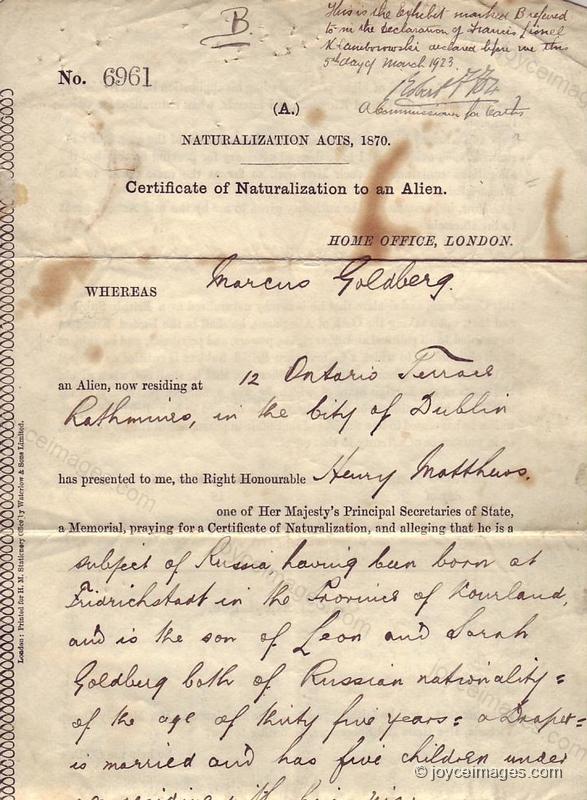 B.
This is the Exhibit marked B referred
to in the Declaration of Francis Lionel
declared before me this
5th day of March 1923.
A Commissioner for Oaths
No. 6961
(A.)
NATURALIZATION ACTS, 1870.
Certificate of Naturalization to an Alien.
HOME OFFICE, LONDON.
WHEREAS Marcus Goldberg.
an Alien, now residing at 12 Ontario Terrace
Rathmines, in the City of Dublin
has presented to me, the Right Honourable Henry Matthews.
one of Her Majesty's Principal Secretaries of State,
a Memorial, praying for a Certificate of Naturalization, and alleging that he is a
subject of Russia, having been born at
Fridrichstadt in the Province of Kourland,
and is the son of Leon and Sarah
Goldberg both of Russian nationality =
of the age of thirty five years = a Draper =
is married and has five children under
London: Printed for H. M. Stationery Office by Waterlow & Sons Limited.
© joyceimages.com